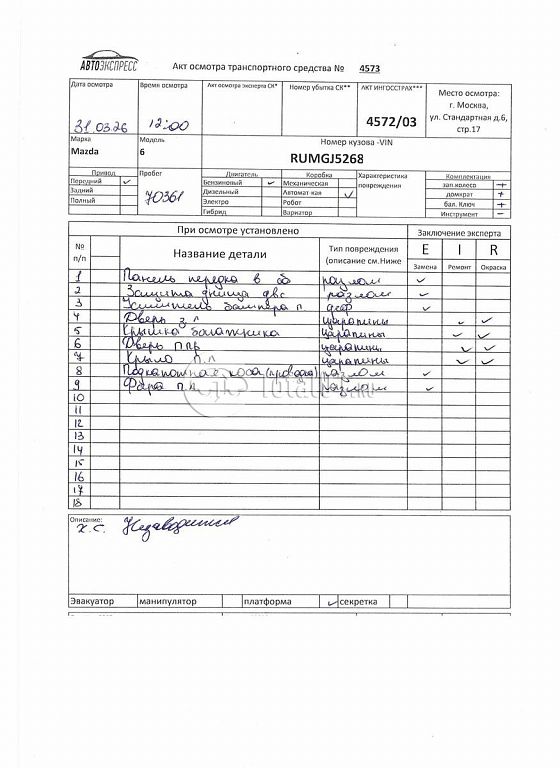 АВТОЭКСПРЕСС
Акт осмотра транспортного средства № 4573
Дата осмотра
Время осмотра
Акт осмотра эксперта СК*
Номер убытка СК**
АКТ ИНГОССТРАХ***
Место осмотра:
г. Москва,
ул. Стандартная д.6,
стр.17
31.03.26
12:00
4572/03
Марка
Модель
Номер кузова -VIN
Mazda
6
RUMGJ5268
Привод
Пробег
Двигатель
Коробка
Характеристика
повреждения
Комплектация
Передний ✓
Бензиновый ✓
Механическая
зап.колесо +
Задний
70361
Дизельный
Автомат кая ✓
домкрат +
Полный
Электро
Робот
бал. Ключ +
Гибрид
Вариатор
Инструмент –
№
п/п
При осмотре установлено
Заключение эксперта
Название детали
Тип повреждения
(описание см.Ниже
E I R
Замена Ремонт Окраска
1 Панель передка в сб разлом ✓
2 Защита днища двс разлом ✓
3 Усилитель бампера п. деф ✓
4 Дверь з л царапины ✓ ✓
5 Крышка багажника царапины ✓ ✓
6 Дверь ппр царапин. ✓ ✓
7 Крыло п.л царапины ✓ ✓
8 Подкапотная коса (проводка) разлом ✓
9 Фара п.п. разлом ✓
10
11
12
13
14
15
16
17
18
Описание:
Х.С. Незаводится
Эвакуатор манипулятор платформа ✓ секретка